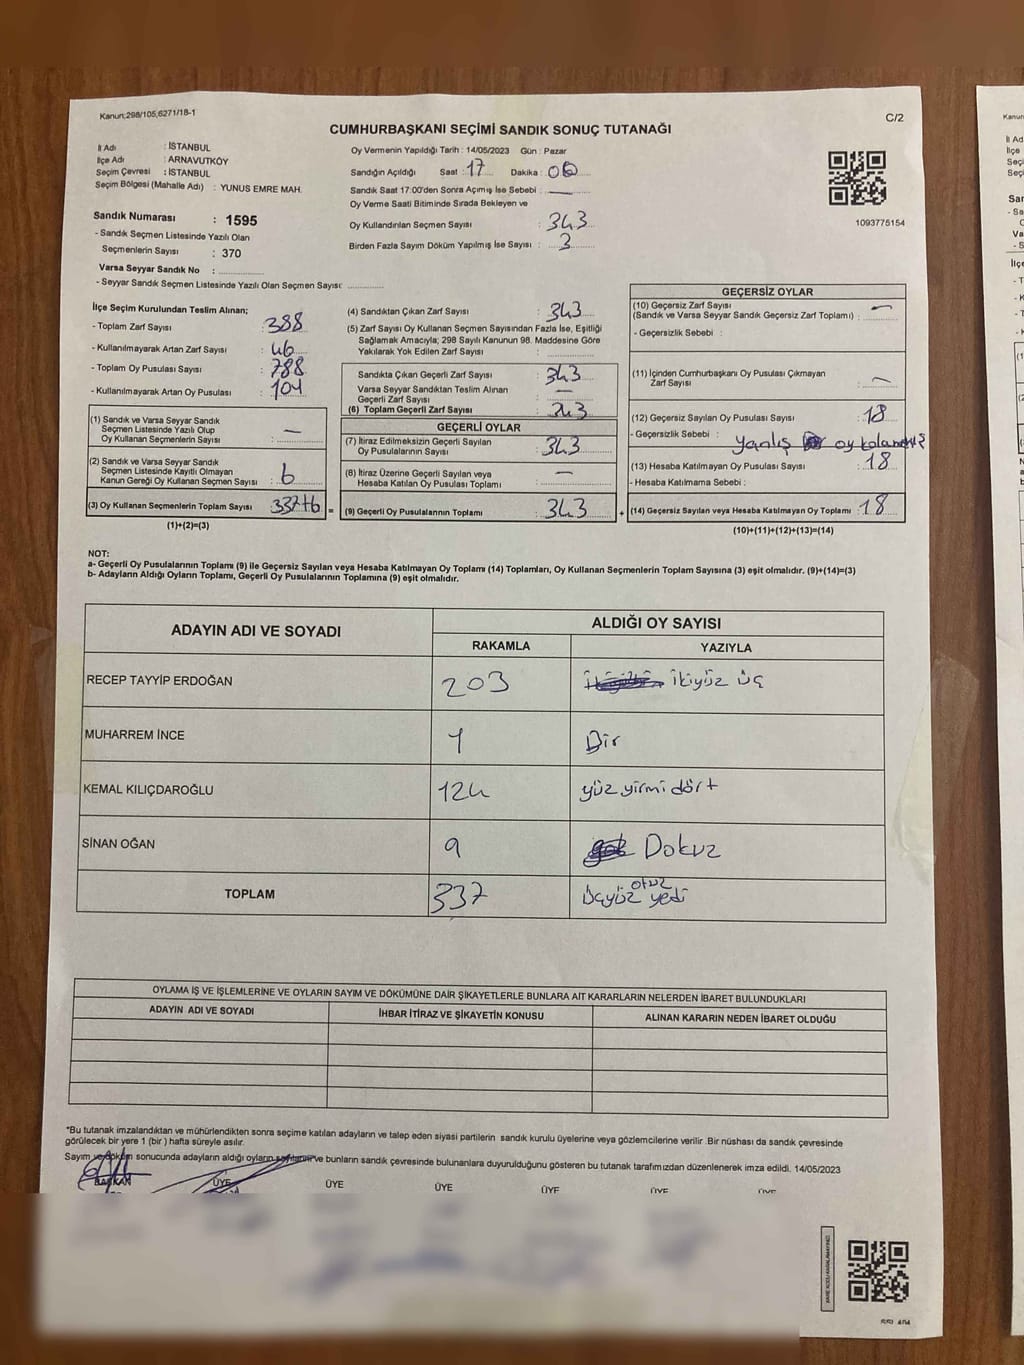 Kanun:298/105,6271/18-1
C/2
CUMHURBAŞKANI SEÇİMİ SANDIK SONUÇ TUTANAĞI
İl Adı : İSTANBUL
İlçe Adı : ARNAVUTKÖY
Seçim Çevresi : İSTANBUL
Seçim Bölgesi (Mahalle Adı) : YUNUS EMRE MAH.
Sandık Numarası : 1595
- Sandık Seçmen Listesinde Yazılı Olan
Seçmenlerin Sayısı : 370
Varsa Seyyar Sandık No :
- Seyyar Sandık Seçmen Listesinde Yazılı Olan Seçmen Sayısı:
Oy Vermenin Yapıldığı Tarih : 14/05/2023 Gün : Pazar
Sandığın Açıldığı Saat : 17 Dakika : 00
Sandık Saat 17:00'den Sonra Açımış İse Sebebi : —
Oy Verme Saati Bitiminde Sırada Bekleyen ve
Oy Kullandırılan Seçmen Sayısı : 343
Birden Fazla Sayım Döküm Yapılmış İse Sayısı : 3
1093775154
İlçe Seçim Kurulundan Teslim Alınan;
- Toplam Zarf Sayısı : 388
- Kullanılmayarak Artan Zarf Sayısı : 46
- Toplam Oy Pusulası Sayısı : 788
- Kullanılmayarak Artan Oy Pusulası : 104
(1) Sandık ve Varsa Seyyar Sandık
Seçmen Listesinde Yazılı Olup
Oy Kullanan Seçmenlerin Sayısı : —
(2) Sandık ve Varsa Seyyar Sandık
Seçmen Listesinde Kayıtlı Olmayan
Kanun Gereği Oy Kullanan Seçmen Sayısı : 6
(3) Oy Kullanan Seçmenlerin Toplam Sayısı : 337+6
(1)+(2)=(3)
(4) Sandıktan Çıkan Zarf Sayısı : 343
(5) Zarf Sayısı Oy Kullanan Seçmen Sayısından Fazla İse, Eşitliği
Sağlamak Amacıyla; 298 Sayılı Kanunun 98. Maddesine Göre
Yakılarak Yok Edilen Zarf Sayısı :
Sandıkta Çıkan Geçerli Zarf Sayısı : 343
Varsa Seyyar Sandıktan Teslim Alınan
Geçerli Zarf Sayısı : —
(6) Toplam Geçerli Zarf Sayısı : 343
GEÇERLİ OYLAR
(7) İtiraz Edilmeksizin Geçerli Sayılan
Oy Pusulalarının Sayısı : 343
(8) İtiraz Üzerine Geçerli Sayılan veya
Hesaba Katılan Oy Pusulası Toplamı : —
= (9) Geçerli Oy Pusulalarının Toplamı : 343
GEÇERSİZ OYLAR
(10) Geçersiz Zarf Sayısı
(Sandık ve Varsa Seyyar Sandık Geçersiz Zarf Toplamı) : —
- Geçersizlik Sebebi :
(11) İçinden Cumhurbaşkanı Oy Pusulası Çıkmayan
Zarf Sayısı : —
(12) Geçersiz Sayılan Oy Pusulası Sayısı : 18
- Geçersizlik Sebebi : yanlış oy
(13) Hesaba Katılmayan Oy Pusulası Sayısı : 18
- Hesaba Katılmama Sebebi :
+ (14) Geçersiz Sayılan veya Hesaba Katılmayan Oy Toplamı : 18
(10)+(11)+(12)+(13)=(14)
NOT:
a- Geçerli Oy Pusulalarının Toplamı (9) ile Geçersiz Sayılan veya Hesaba Katılmayan Oy Toplamı (14) Toplamları, Oy Kullanan Seçmenlerin Toplam Sayısına (3) eşit olmalıdır. (9)+(14)=(3)
b- Adayların Aldığı Oyların Toplamı, Geçerli Oy Pusulalarının Toplamına (9) eşit olmalıdır.
ADAYIN ADI VE SOYADI
ALDIĞI OY SAYISI
RAKAMLA YAZIYLA
RECEP TAYYİP ERDOĞAN 203 ikiyüz üç
MUHARREM İNCE 1 Bir
KEMAL KILIÇDAROĞLU 124 yüz yirmi dört
SİNAN OĞAN 9 Dokuz
TOPLAM 337 Üçyüz otuz yedi
OYLAMA İŞ VE İŞLEMLERİNE VE OYLARIN SAYIM VE DÖKÜMÜNE DAİR ŞİKAYETLERLE BUNLARA AİT KARARLARIN NELERDEN İBARET BULUNDUKLARI
ADAYIN ADI VE SOYADI İHBAR İTİRAZ VE ŞİKAYETİN KONUSU ALINAN KARARIN NEDEN İBARET OLDUĞU
*Bu tutanak imzalandıktan ve mühürlendikten sonra seçime katılan adayların ve talep eden siyasi partilerin sandık kurulu üyelerine veya gözlemcilerine verilir .Bir nüshası da sandık çevresinde
görülecek bir yere 1 (bir ) hafta süreyle asılır.
Sayım ve döküm sonucunda adayların aldığı oyların sayılarını ve bunların sandık çevresinde bulunanlara duyurulduğunu gösteren bu tutanak tarafımızdan düzenlenerek imza edildi. 14/05/2023
BAŞKAN ÜYE ÜYE ÜYE ÜYE ÜYE ÜYE